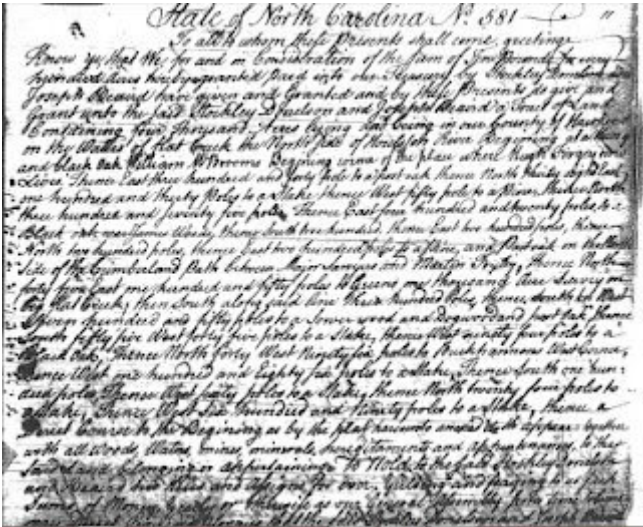 State of North Carolina No. 581
To all to whom these Presents shall come, greeting
Know ye that We, for and in Consideration of the Sum of Ten Pounds for every
hundred Acres hereby granted paid into our Treasury by Stockley Donelson and
Joseph Beaird have given and Granted and by these Presents do give and
Grant unto the said Stockley Donelson and Joseph Beaird a Tract of Land
Containing four Thousand Acres lying and being in our County of Hawkins
on the Waters of Flat Creek the North side of Holston River Beginning at a
and black Oak William Begining corner of the place where Hugh
Lives Thence East three hundred and forty pole to a post oak thence North thirty eight East
one hundred and thirty Poles to a Stake, thence West fifty pole to a Pine, thence North
three hundred and seventy five poles, Thence East four hundred and twenty poles, to a
Black oak near James thence South two hundred, thence East two hundred poles, thence
North two hundred poles, thence East two hundred poles to a Pine, and Post oak on the
side of the Cumberland Path between Major and Martin thence North
forty five East one hundred and fifty poles to one thousand acre Survey on
big Flat Creek, then South along said line three hundred Poles, thence, South
Seven hundred and fifty poles to a Sower wood and dogwood and post oak thence
South fifty five West forty five poles to a Stake, thence West ninety four poles to a
Black Oak, Thence North forty West Ninety six poles to West Corner,
Thence West one hundred and Eighty six poles to a Stake, Thence South one hun-
dred poles Thence West sixty poles to a Stake, thence North twenty four poles to
a Stake, Thence West Six hundred and Ninety poles to a Stake, thence a
Direct Course to the Begining as by the plat hereunto annexed doth appear together
with all Woods, Waters, mines, minerals, hereditaments and appurtenances, to the
said Land belonging or appertaining To Hold to the said Stockley Donelson
and Beaird their Heirs and assigns for ever. Yielding and paying to us such
Sums of Money Yearly or otherwise as our General Assembly from time to time